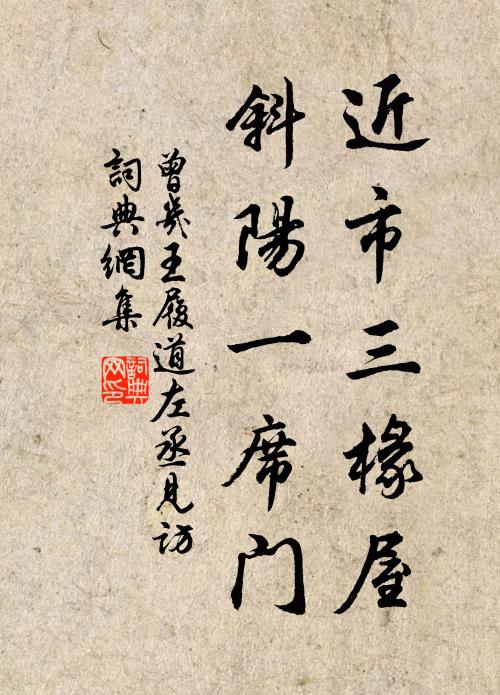 近市三椽屋
斜陽一席門
曾幾王履道左丞見訪
詞典網集
詞典網印